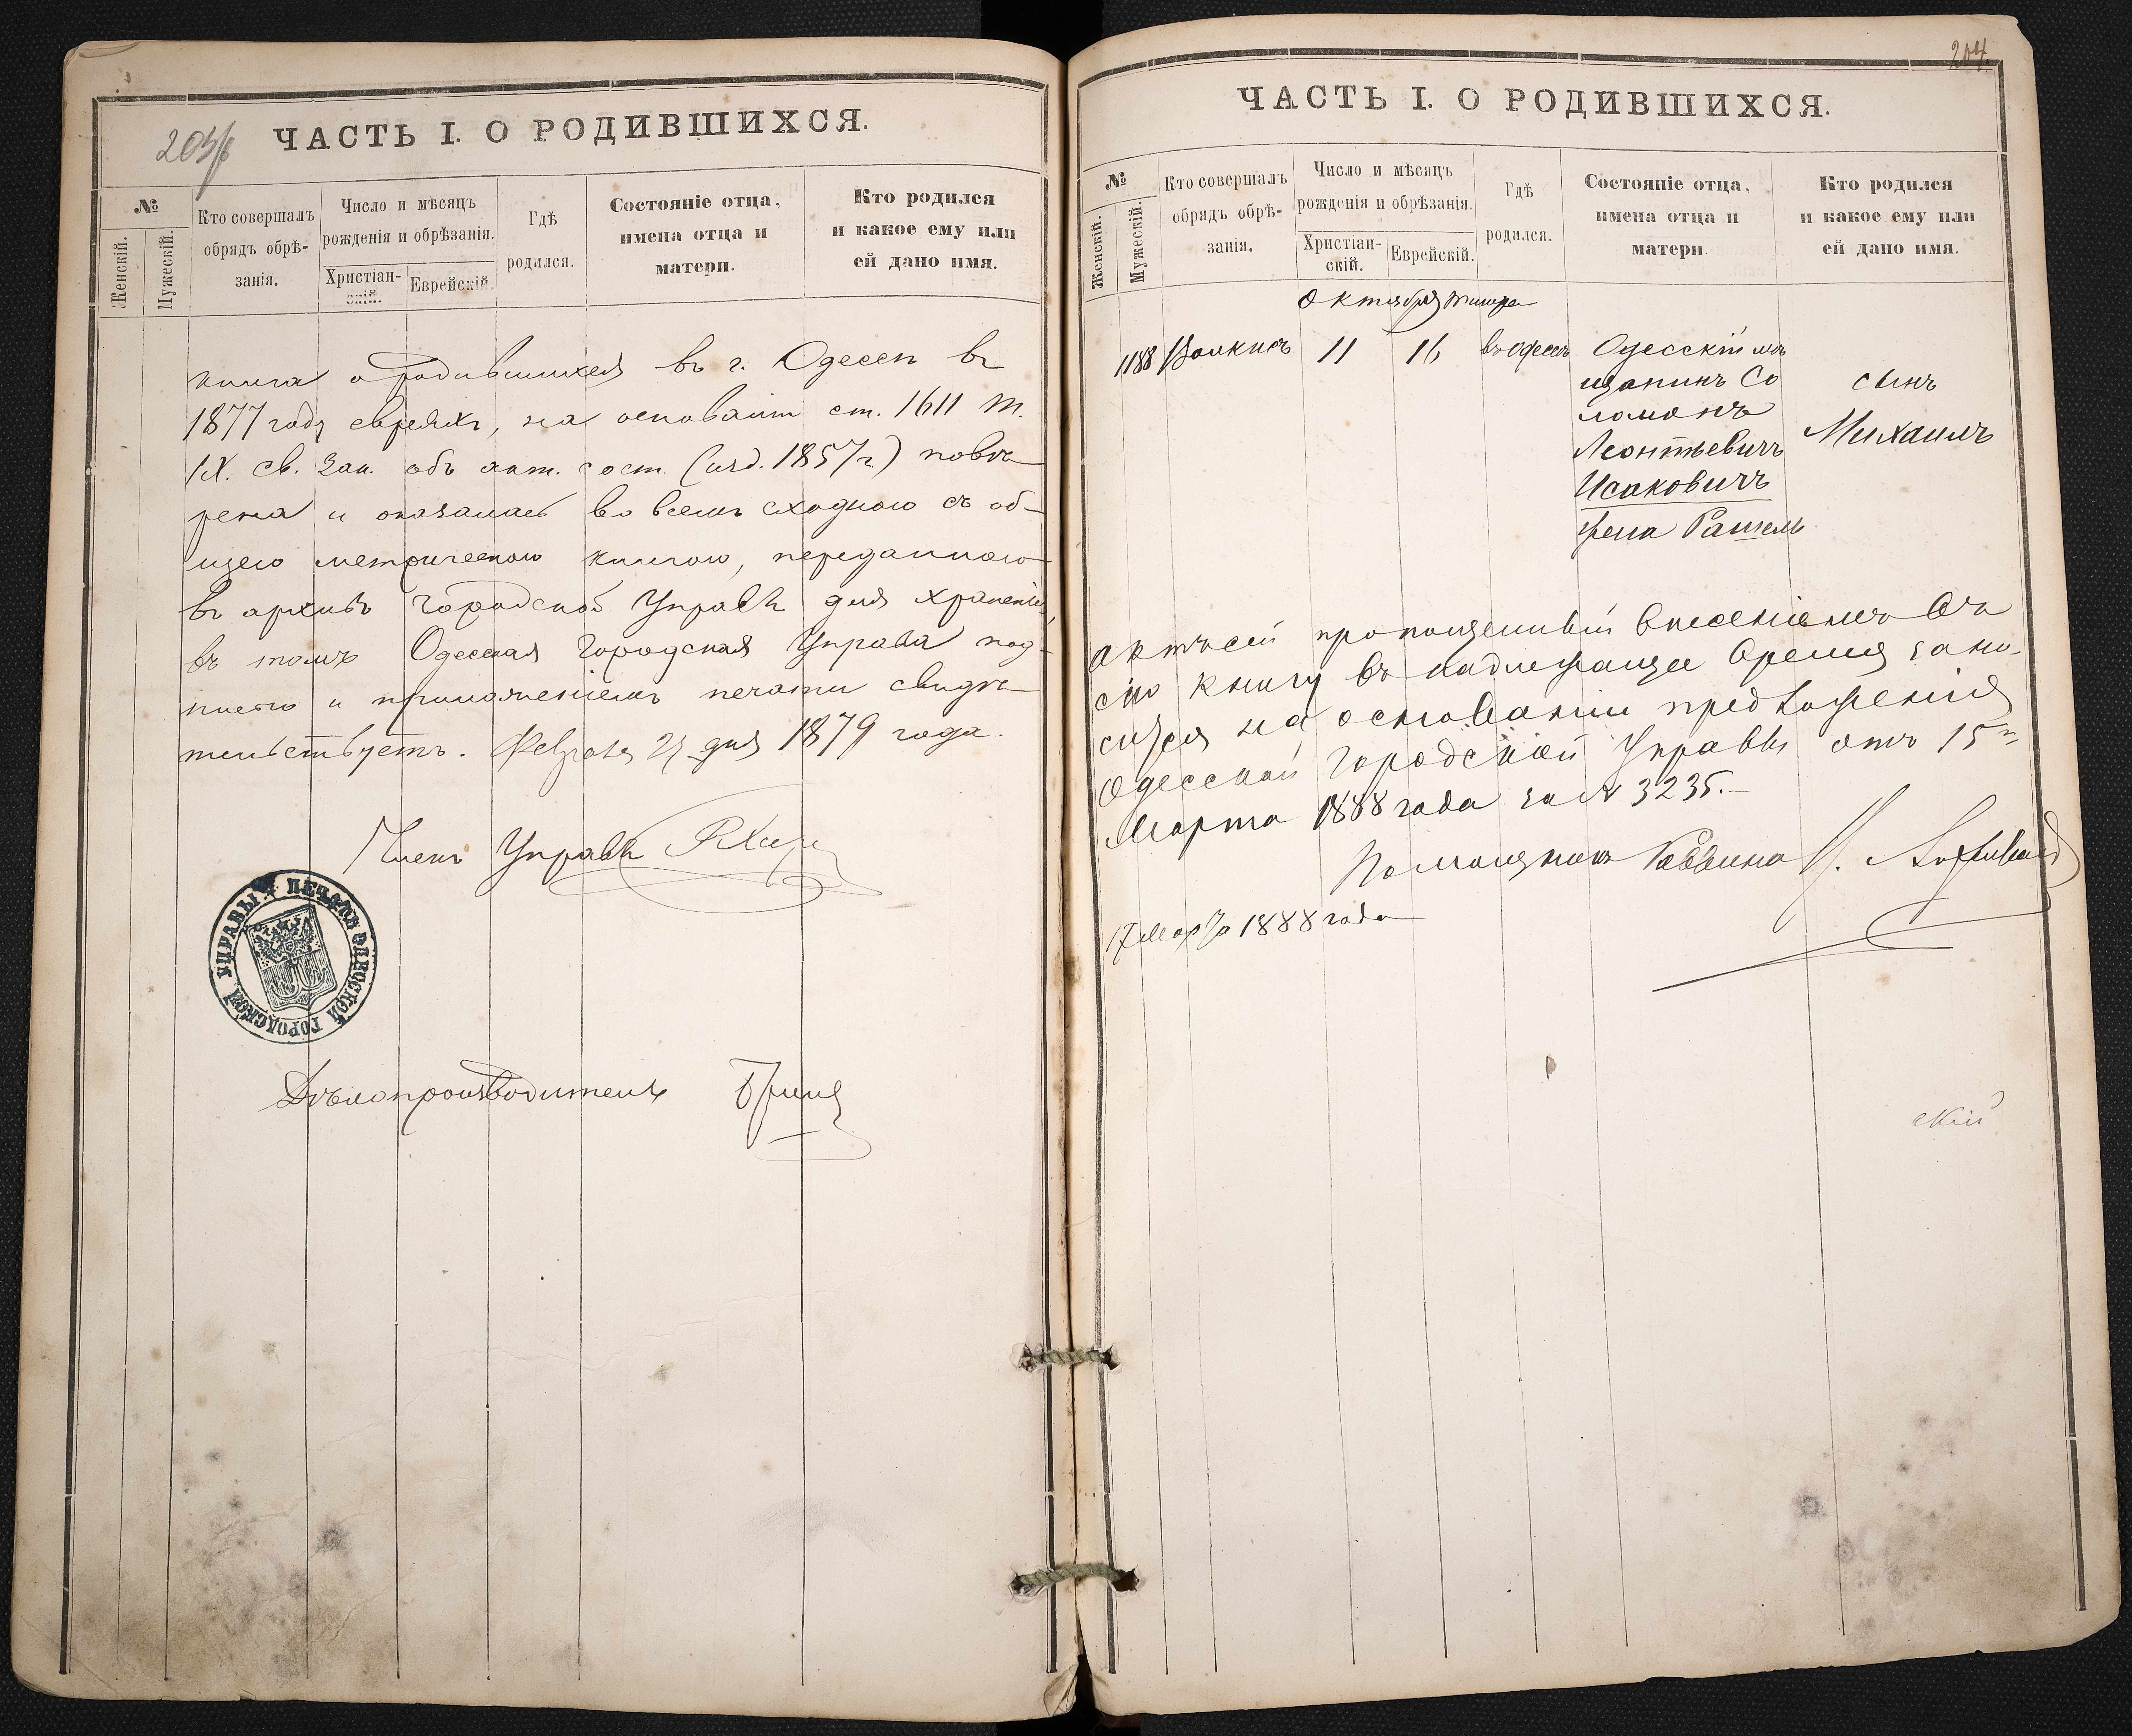 203/б
ЧАСТЬ I. О РОДИВШИХСЯ.
№
Женскій.
Мужескій.
Кто совершалъ
обрядъ обрѣ-
занія.
Число и мѣсяцъ
рожденія и обрѣзанія.
Христіан-
скій.
Еврейскій.
Гдѣ
родился.
Состояніе отца,
имена отца и
матери.
Кто родился
и какое ему или
ей дано имя.
книга о родившихся въ г. Одессѣ въ
1877 году евреяхъ, на основаніи ст. 1611 т.
IX. св. Зак. объ акт. сост. (изд. 1857 г.) повѣ-
рена и оказалась во всемъ сходною съ об-
щею метрическою книгою, переданною
въ архивъ Городской Управы для храненія,
въ томъ Одесская Городская Управа под-
писью и приложеніемъ печати свидѣ-
тельствуетъ. Февраля дня 1879 года.
Членъ Управы
ПЕЧАТЬ ОДЕССКОЙ ГОРОДСКОЙ УПРАВЫ
Дѣлопроизводитель
204.
ЧАСТЬ I. О РОДИВШИХСЯ.
№
Женскій.
Мужескій.
Кто совершалъ
обрядъ обрѣ-
занія.
Число и мѣсяцъ
рожденія и обрѣзанія.
Христіан-
скій.
Еврейскій.
Гдѣ
родился.
Состояніе отца,
имена отца и
матери.
Кто родился
и какое ему или
ей дано имя.
Октября Тишра
1188 11 16 въ Одессѣ Одесскій мѣ
щанинъ Со
ломонъ
Леонтьевичъ
Исаковичъ
жена Рашель
сынъ
Михаилъ
Актъ сей пропущенный внесеніемъ въ
сію книгу въ надлежащее время зано-
сится на основаніи предложенія
Одесской Городской Управы отъ 15го
Марта 1888 года за № 3235.—
Помощникъ Раввина
17 Марта 1888 года
скій